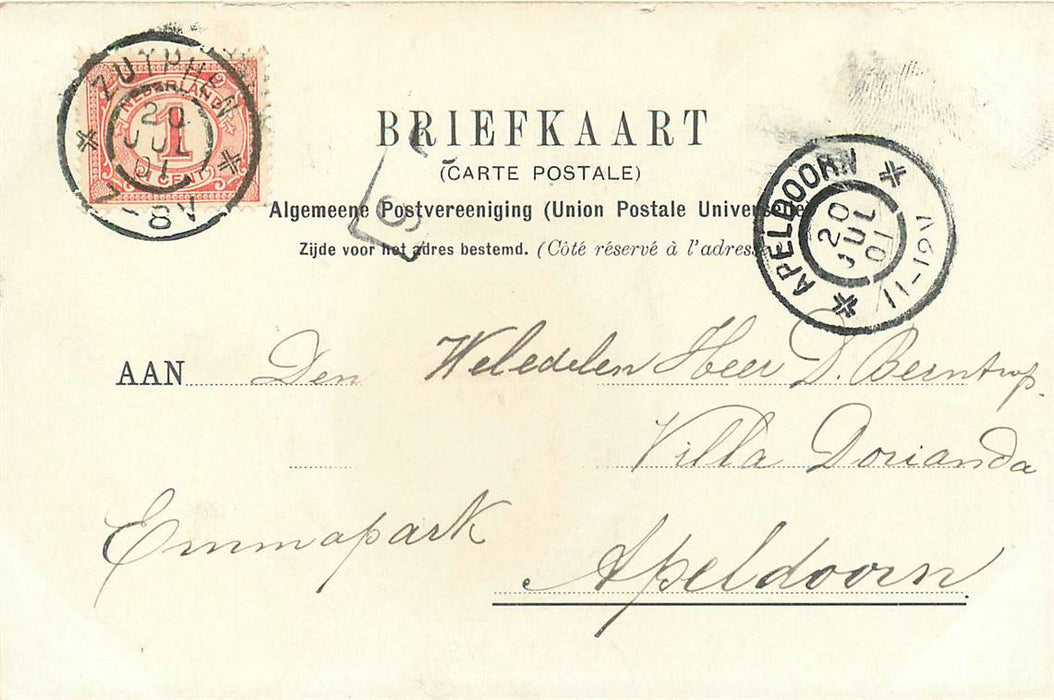 ZUTPHEN
20
JUL
01
7-8V
NEDERLAND
1
CENT
BRIEFKAART
(CARTE POSTALE)
Algemeene Postvereeniging (Union Postale Universelle)
Zijde voor het adres bestemd. (Côté réservé à l'adresse)
6
APELDOORN
20
JUL
01
11-12V
AAN Den Weledelen Heer D. Berntrop.
Villa Dorianda
Emmapark
Apeldoorn